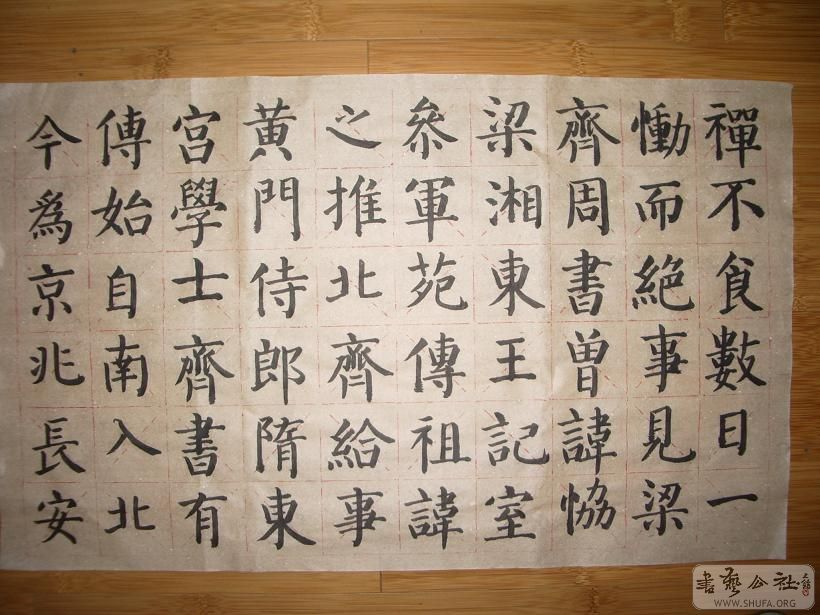 禪不食數日一
慟而絕事見梁
齊周書曾諱恊
梁湘東王記室
參軍苑傳祖諱
之推北齊給事
黃門侍郎隋東
宮學士齊書有
傳始自南入北
今為京兆長安
書藝公社
WWW.SHUFA.ORG